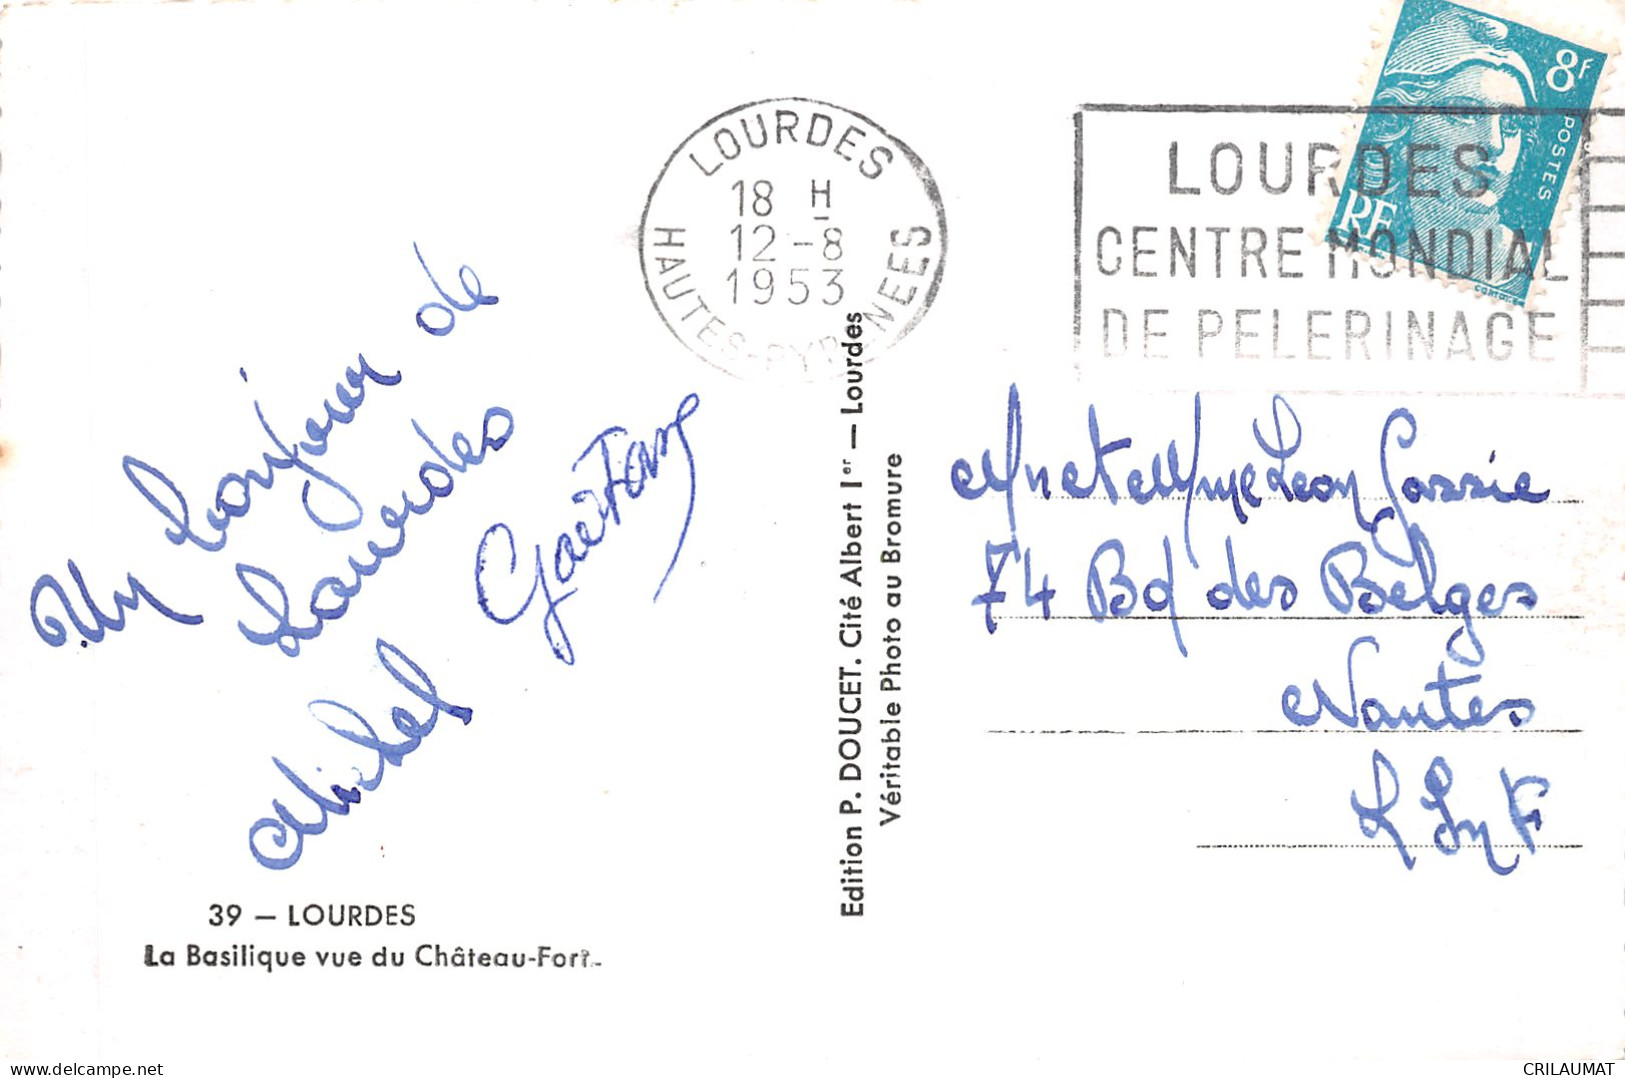 Un bonjour de
Lourdes
Michel Gaëtan
39 — LOURDES
La Basilique vue du Château-Fort.
Edition P. DOUCET. Cité Albert Ier — Lourdes
Véritable Photo au Bromure
LOURDES
18 H
12-8
1953
HAUTES-PYRENEES
LOURDES
CENTRE MONDIAL
DE PELERINAGE
8F
POSTES
RF
Mr et Mme Leon
74 Bd des Belges
Nantes
L Inf
CRILAUMAT